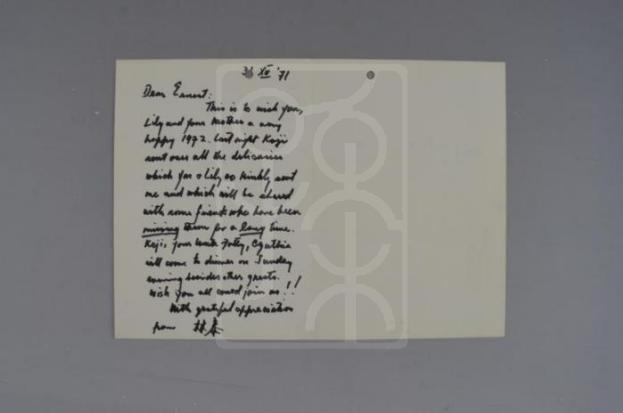 31 XII '71
Dear Ernest:
This is to wish you,
Lily and your Mother a very
happy 1972. Last night Koji
sent over all the delicacies
which you & Lily so kindly sent
me and which will be shared
with some friends who have been
missing them for a long time.
Koji, your Uncle Folly, Cynthia
will come to dinner on Sunday
evening besides other guests.
Wish you all could join us!!
With grateful appreciation
from